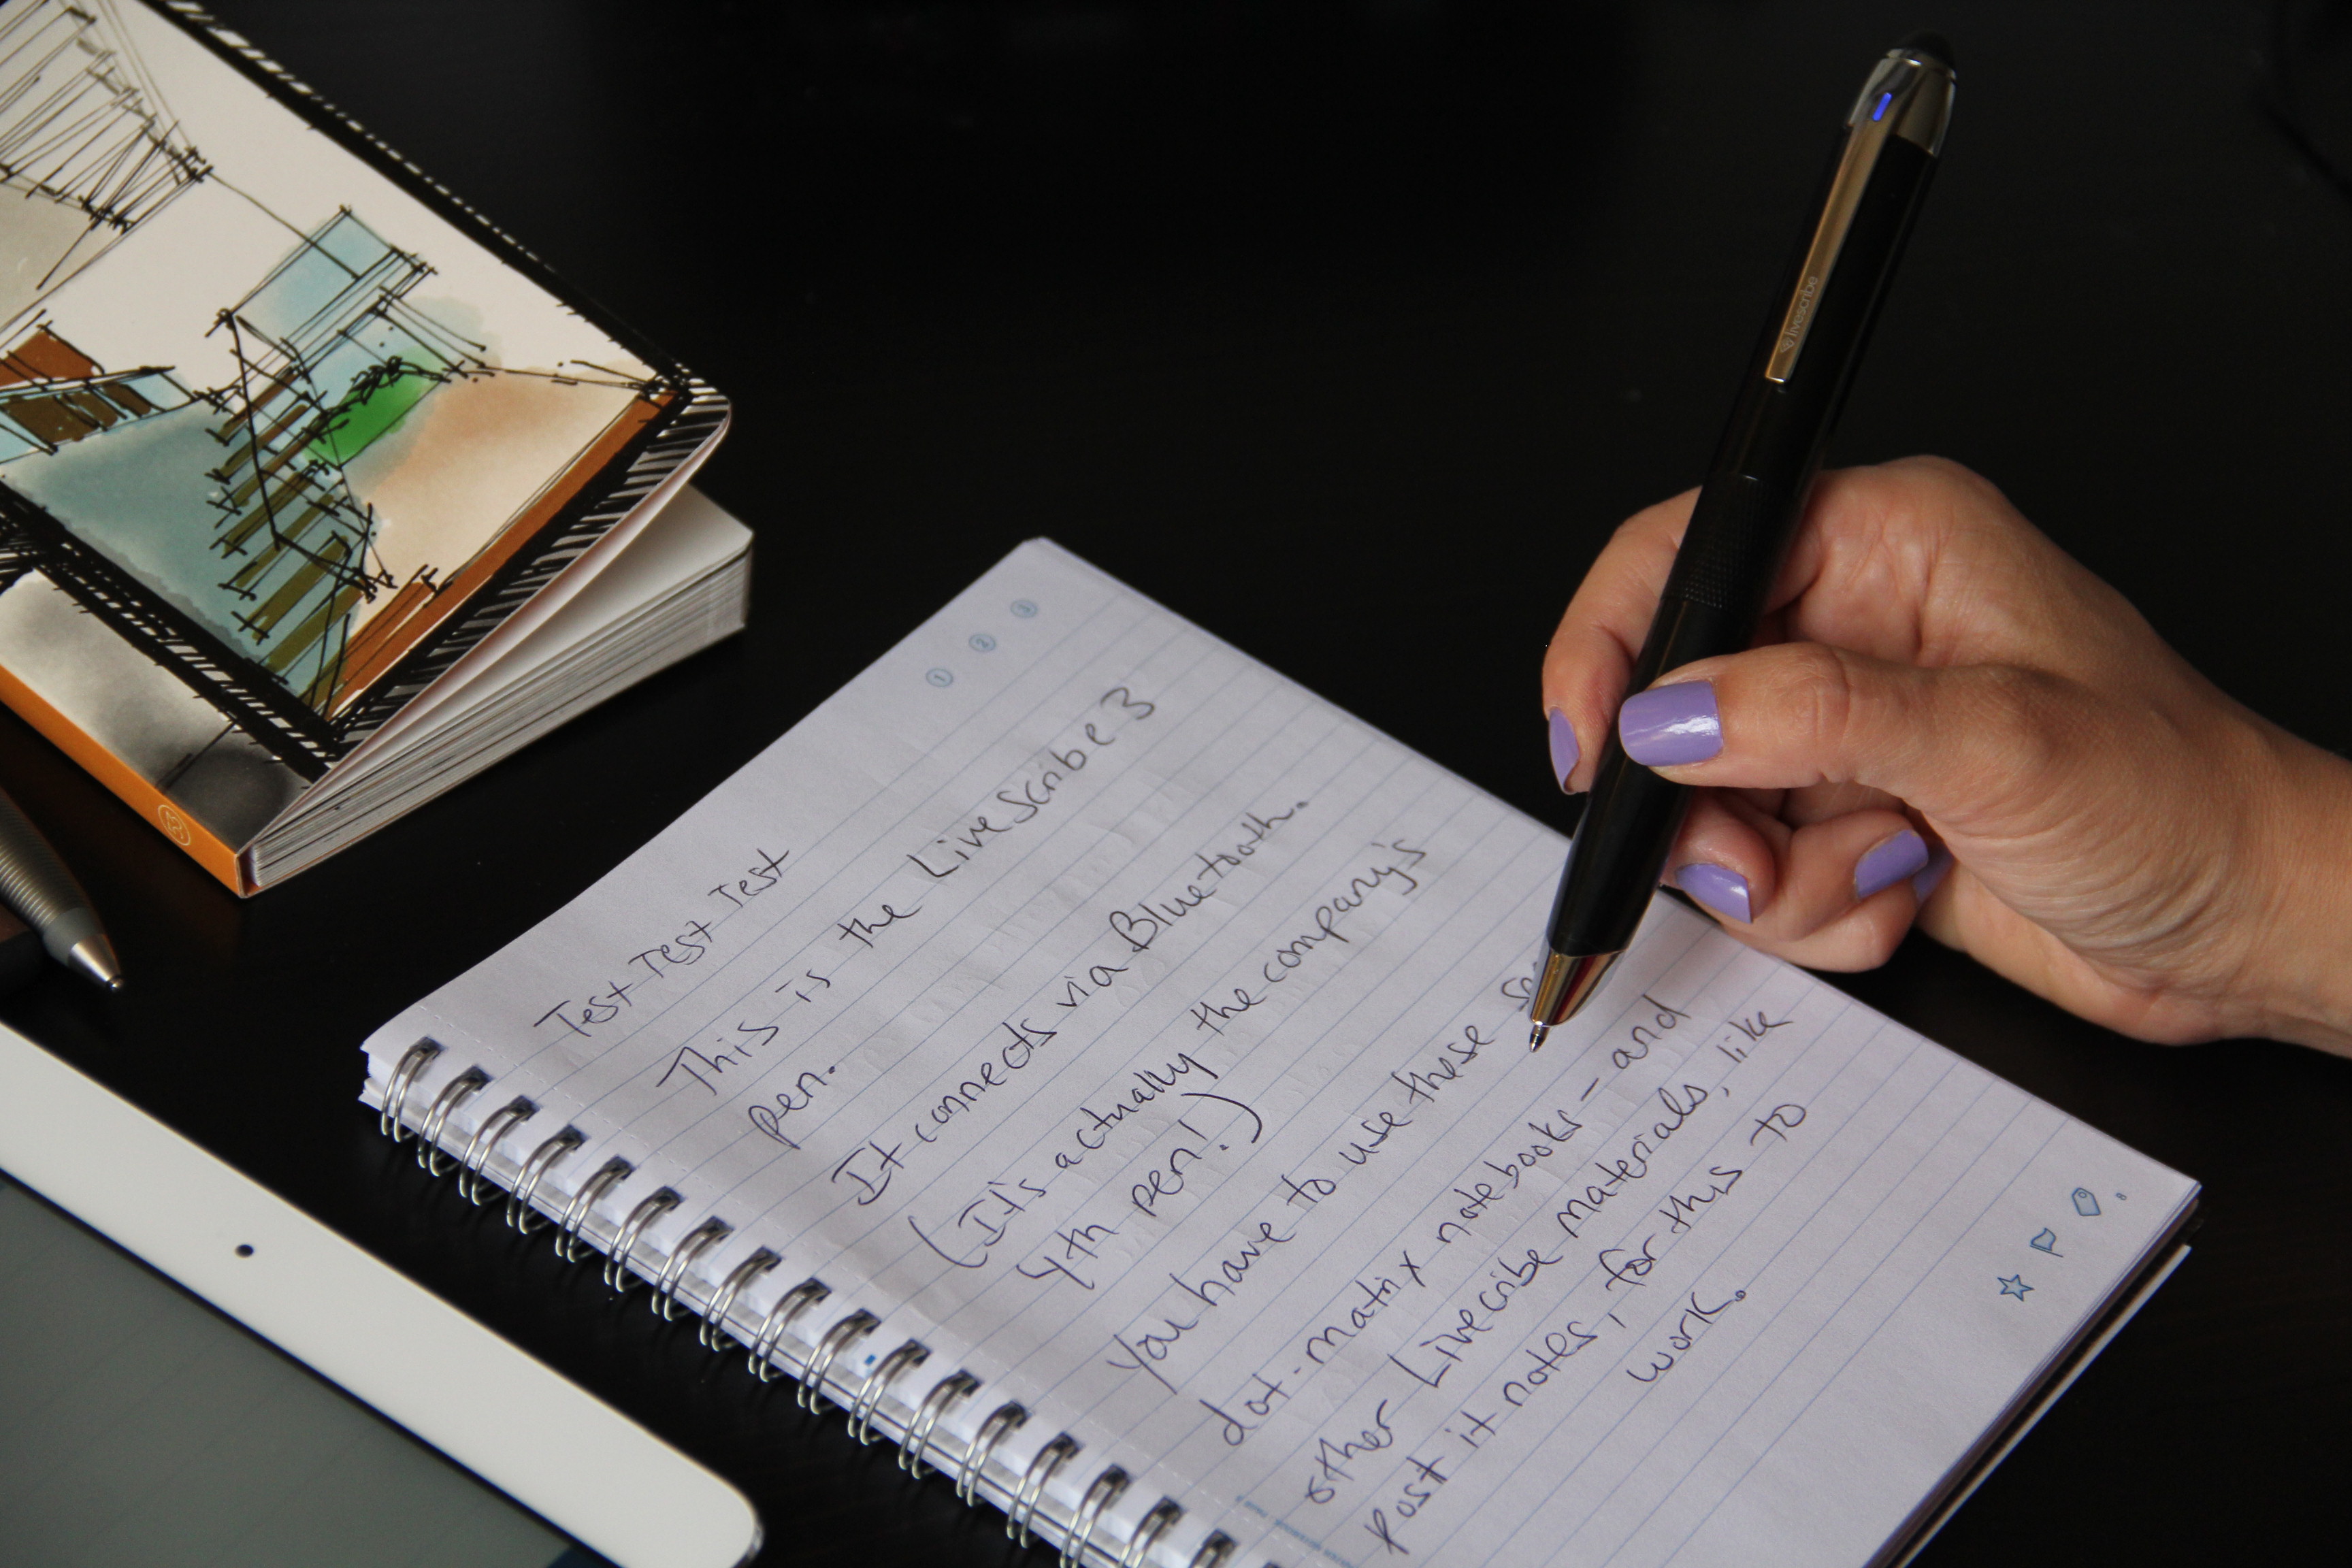 livescribe
1 2 3
Test Test Test
This is the LiveScribe 3
pen.
It connects via Bluetooth.
(It's actually the company's
4th pen!)
You have to use these
dot-matrix notebooks - and
other Livecribe materials, like
Post it notes, for this to
work.
8